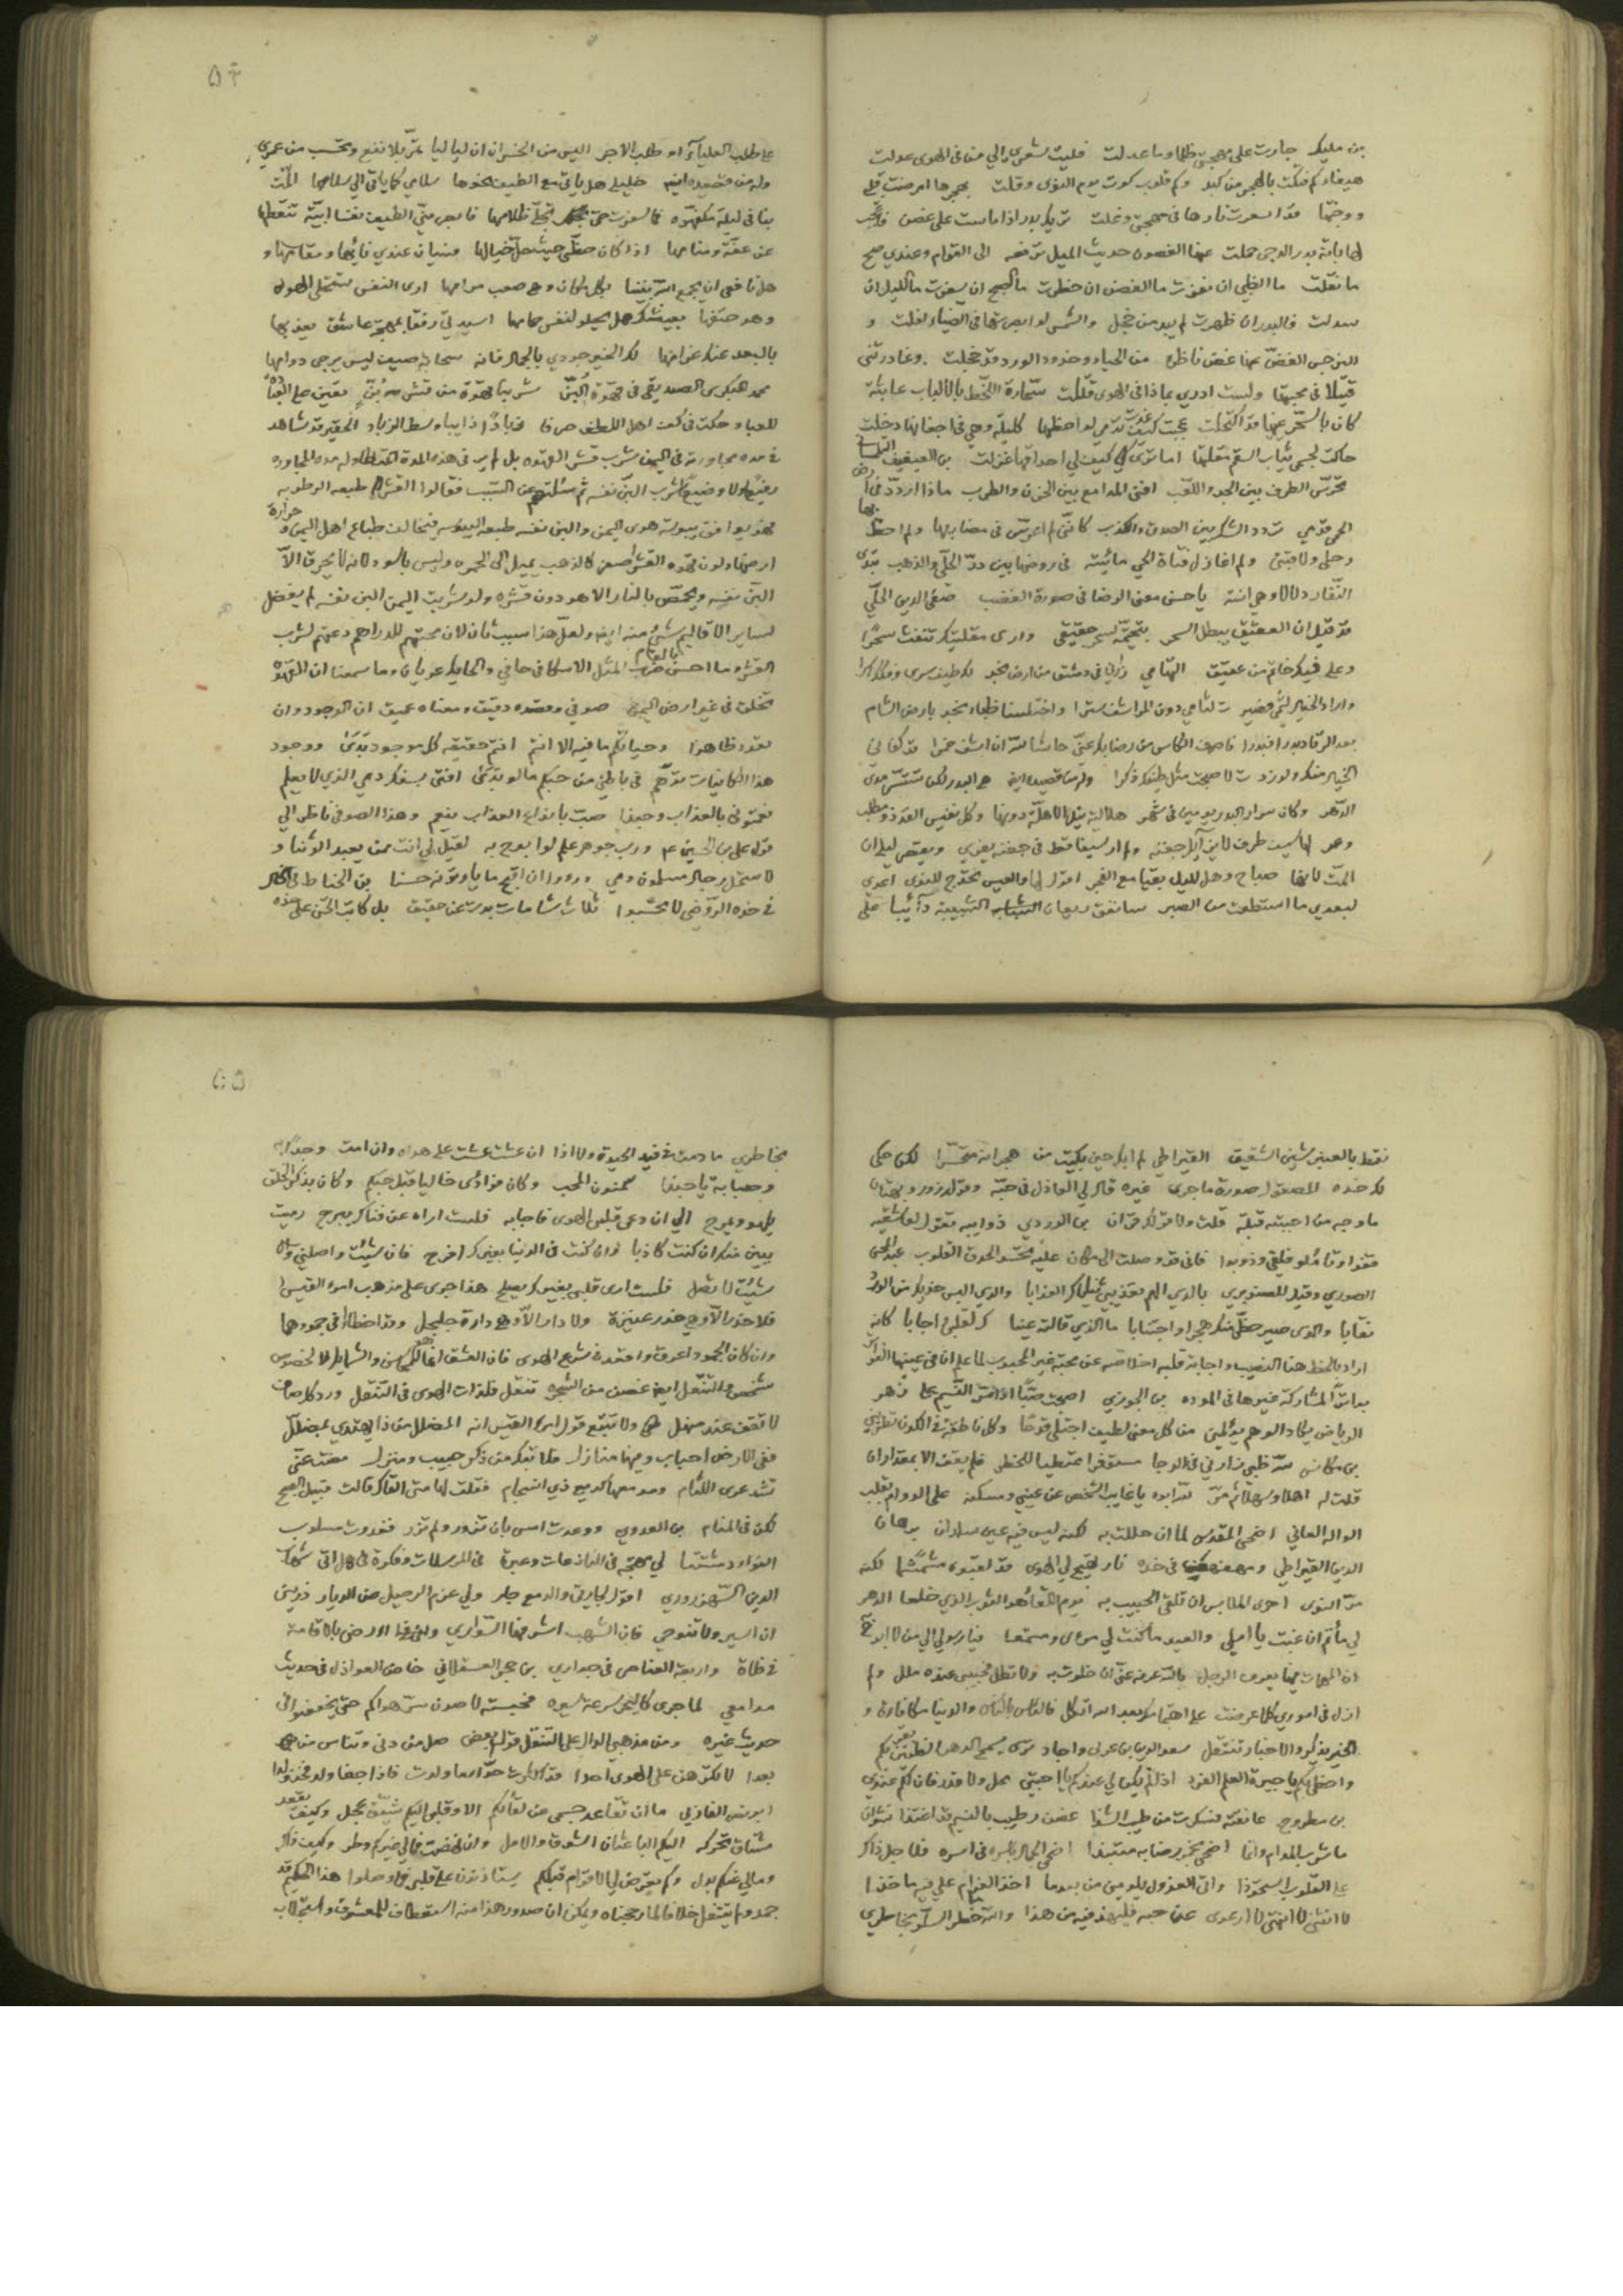 بن مليك جارت على مهجتي ظلما وما عدلت فليت شعري الي من في الهوى عدلت
هيفاء كم فتكت بالهجر من كبد وكم قلوب كوت يوم النوى وقلت بهجرها امرضت قلبي
ووجنتها قد اسعرت نارها في مهجتي وغلت تريك بدرا اذا ماست على غصن
لها بانة بدر الدجى حملت عنها الغصون حديث الميل ترفعه الى القوام وعندي صح
ما نقلت ما الظبي ان نفرت ما الغصن ان خطرت ما الصبح ان سفرت ما الليل ان
سدلت فالبدر ان ظهرت لم يبد من خجل والشمس لو ابصرتها في الضياء افلت و
النرجس الغض عنها غض ناظره من الحياء وخدود الورد قد خجلت وغادرتني
قتيلا في محبتها ولست ادري بماذا في الهوى قتلت سحارة اللحظ بالالباب عابثة
كان بالسحر عينها قد اكتحلت عجبت كيف لواحظها كليلة وهي في اجفانها دخلت
حاكت لجسمي ثياب السقم مقلتها اما ترى كيف لي احداقها غزلت بن العفيف التلمساني
بين الجد واللعب افنى المدامع بين الحزن والطرب ماذا اردد في
الحمى قدمي تردد الشك بين الصدق والكذب كانني لم اعرس في مضاربها ولم احط بها
رحلي ولا قتبي ولم اغازل فتاة الحي مائسة في روضها بين در الحلي والذهب
النفار دلالا وهي آنسة يا حسن معنى الرضا في صورة الغضب صفي الدين الحلي
قد قيل ان العقيق يبطل السحر بتختمه لسر حقيقي وارى مقلتيك تنفث سحرا
وعلى فيك خاتم من عقيق التهامي في دمشق من ارض نجد لك طيف سرى
واراد الخيال لثمي فصيرت لثامي دون المراشف سترا واختلسنا ظباء نجد بارض الشام
بعد الرقاد بدرا فبدرا فاصرف الكاس من رضابك عني حاشا لله ان ارشف خمرا قد كفاني
الخيال منك ولو زرت لاصبحت مثل طيفك ذكرا وله من قصيدة ايضا هي البدر لكن تستتر مدى
الدهر وكان سرار البدر يومين في شهر هلالية نيل الاهلة دونها وكل نفيس القدر ذو مطلب
وعر لها سيف طرف لا يزايل جفنه ولم ار سيفا قط في جفنه يفري ويقصر ليلي ان
المت لانها صباح وهل لليل بقيا مع الفجر اقول لها والعيس تحدج للنوى اعدي
لبعدي ما استطعت من الصبر سانفق ريعان الشبيبة دائبا على
على طلب العلياء او طلب الاجر اليس من الخسران ان لياليا تمر بلا نفع وتحسب من عمري
وله من قصيدة ايضا خليلي هل يأتي مع الطيف نحوها سلامي كما يأتي الي سلامها المت
بنا في ليلة مكفهرة فما سفرت حتى تجلى ظلامها فابصر مني الطيف نفسا ابية تيقظها
عن عفة ومنامها اذا كان حظي حيث حل خيالها فسيان عندي نأيها ومقامها و
هل نافعي ان يجمع الله بيننا بكل مكان وهي صعب مرامها ارى النفس تستحلي الهوى
وهو حتفها بعيشك هل يحلو لنفس حمامها اسيدتي رفقا بمهجة عاشق يعذبها
بالبعد عنك غرامها لك الخير جودي بالجمال فانه سحابة صيف ليس يرجى دوامها
محمد البكري الصديقي في قهوة البن شربنا قهوة من قشر بن تعين على
للعباد حكت في كف اهل اللطف صرفا اذابا وسط الزباد الحقير قد شاهد
في مدة مجاورته في اليمن شرب قشر القهوة بل لم ير في هذه المدة المتطاولة من المجاورة
رفيعا ولا وضيعا يشرب البن نفسه ثم سئلتهم عن السبب فقالوا القشر طبيعه الرطوبة
فهو يوافق يبوسة هوى اليمن والبن نفسه طبعه اليبوسة فيخالف طباع اهل اليمن و حرارة
ارضها ولون قهوة القشر اصفر كالذهب يميل الى الحمرة وليس باسود لانه لا يحرق الا
البن نفسه ويحمص بالنار لا هو دون قشره ولو شربت اليمن البن نفسه لم يفضل
لساير الاقاليم شيء منه ايضا ولعل هذا سبب ثان لان محبتهم للدراهم دعتهم لشرب
القشر وما احسن ضرب بالعام المثل الاسكافي حافي والحايك عريان وما سمعنا ان القهوة
تخلق في غير ارض اليمن صوفي وقصده دقيق ومعناه عميق ان الوجود وان
تعدد ظاهرا وحياتكم ما فيه الا انتم انتم حقيقة كل موجود بدى ووجود
هذا الكاينات توهم في باطني من حبكم ما لو بدى افتى بسفك دمي الذي لا يعلم
نعمتموني بالعذاب وحبذا صب بانواع العذاب ينعم وهذا الصوفي ناظر الي
قول علي بن الحسين ع ورب جوهر علم لو ابوح به لقيل لي انت ممن يعبد الوثنا و
لاستحل رجال مسلمون دمي ورووا ان اقبح ما يأتونه حسنا بن الخياط في
في خده الروضي لا تحسبوا ثلاث شامات بدت عن حقيق بل كاتب الحسن على خده
نقط بالعنبر شين الشقيق القيراطي لم ابك حين بكيت من هجرانه متحسرا لكن حكى
لك خده المصقول صورة ما جرى غيره قال لي العاذل في حبه وقوله زور وبهتان
ما وجه من احببته قبلة قلت ولا قولك قرآن بن الوردي ذوايبه تقول لعاشقيه
قفوا وتأملوا قلبي وذوبوا فاني قد وصلت الى مكان عليه تحسد الحدق القلوب عبد المحسن
الصوري وقيل للصنوبري بالذي الهم تعذيبي ثناياك العذابا والذي البس خديك من الورد
نقابا والذي صير حظي منك هجرا واجتنابا ما الذي قالته عينا ك لقلبي اجابا كانه
اراد بالحظ هنا النصيب واجابة قلبه اخلاصه عن محبة غير المحبوب لما علم ان في عينيها الغيرة
المشاركة غيرها في المودة بن الجوزي اصبحت صبا اذا مر النسيم على زهر
الرياض يكاد الوهم يؤلمني من كل معنى لطيف اجتلي قدحا وكل ناطقة في الكون تطربني
بن مكانس لله ظبي زارني في الدجا مستوفزا ممتطيا للخطر فلم يقف الا بمقدار ان
قلت له اهلا وسهلا ثم مر يا غايب الشخص عن عيني ومسكنه على الدوام بقلب
الواله العاني اضحى المقدس لما ان حللت به لكنه ليس فيه عين سلوان برهان
الدين القيراطي في خده نار تهيج لي الهوى قد لقبوه مشمشا لكنه
مر النوى احرى الملابس ان تلقى الحبيب به يوم اللقا هو الثوب الذي خلعا الدهر
لي مأتم ان غبت يا املي والعيد ما كنت لي مرءى ومستمعا فيا رسولي الي من لا ابوح به
ان المهمات فيها يعرف الرجل بالله عرفه عني ان خلوت به ولا تطل فحبيبي عنده ملل ولم
ازل في اموري كلما عرضت على اهتمامك بعد الله اتكل فالناس بالناس والدنيا مكافاة و
الخير يذكر والاخبار تنتقل سعد الدين بن عربي واجاد ترى يسمح الدهر الضنين بقربكم
واحظى بكم يا جيرة العلم الفرد اذا لم يكن لي عندكم يا احبتي محل ولا قدر فان لكم عندي
بن مطروح عانقته فسكرت من طيب الشذا غصن رطيب بالنسيم قد اغتذا نشوان
ما شرب المدام وانما اضحى بخمر رضابه متنبذا اضحى الجمال باسره في اسره فلاجل ذاك
على القلوب استحوذا واتى العذول يلومني من بعدما اخذ الغرام علي فيه ماخذا
لا انثني لا انتهي لا ارعوى عن حبه فليهذ فيه من هذا والله خطر السلو بخاطري
بخاطري ما دمت في قيد الحيوة ولا اذا ان عشت عشت على هواه وان امت وجدا به
وصبابة يا حبذا سمنون المحب وكان فؤادي خاليا قبل حبكم وكان بذكر الخلق
يلهو ويمرح الي ان دعى قلبي الهوى فاجابه فلست اراه عن فناك يبرح رميت
ببين منك ان كنت كاذبا وان كنت في الدنيا بغيرك افرح فان شئت واصلني وان
شئت لا تصل فلست ارى قلبي بغيرك يصلح هذا جرى على مذهب امرء القيس
فلا خدر الاوهي خدر عنيزة ولا دار الاوهي دارة جلجل وقد اخطأ في جمودهما
وان كان الجمود اعرق واقعد في شرع الهوى فان العشق انما هو للحسن والشمايل لا لخصوص
شخص والتنقل ايضا غصن من الشجرة تنقل فلذات الهوى في التنقل ورد كل صاف
لا تقف عند منهل ولا تتبع قول امرء القيس انه المضلل من ذا يهتدي بمضلل
ففي الارض احباب وفيها منازل فلا تبك من ذكرى حبيب ومنزل مضت عني
تشد عرى اللثام ومدمعها كدمع ذي انسجام فقلت لها متى القاك قالت قبيل الصبح
لكن في المنام بن العدوي ووعدت امس بان تزور ولم تزر فغدوت مسلوب
الفؤاد مشتتا لي مهجة في النازعات وعبرة في المرسلات وفكرة في هل اتى شهاب
الدين السهروردي اقول لجارتي والدمع جار ولي عزم الرحيل من الديار ذريني
ان اسير ولا تنوحي فان الشهب اشرفها السواري وارضى بالاقامة
في فلاة واربعة العناصر في جواري بن حجر العسقلاني خاض العواذل في حديث
مدامعي لما جرى كالبحر سرعة سيره فحبسته لاصون سر هواكم حتى يخوضوا في
حديث غيره ومن مذهبي الدال على التنقل قول بعض صل من دنى وتناس من
بعدا لا تكرهن على الهوى احدا قد اكثرت حوا ما ولدت فاذا جفا ولد فخذ ولدا
ابو نصر الفارابي ما ان تقاعد جسمي عن لقائكم الا وقلبي اليكم شيق عجل وكيف يقعد
مشتاق يحركه اليكم الباعثان الشوق والامل وان نهضت فمالي غيركم وطر وكيف ذاك
ومالي عنكم بدل وكم تعرض لي الاقوام قبلكم يستاذنون على قلبي فما وصلوا هذا الحكيم قد
جمد ولم يتنقل خلافا لما رجحناه ويمكن ان صدور هذا منه استعطاف للمعشوق واستجلاب